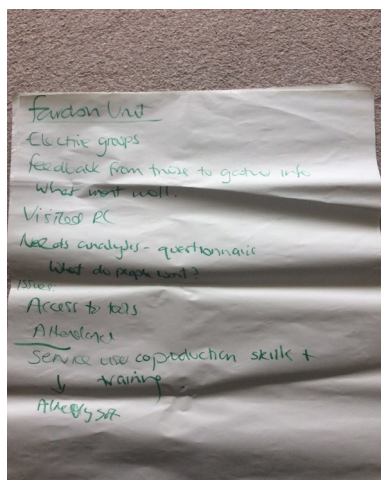 Fardon Unit
Elective groups
feedback from these to gather info
What went well.
Visited RC
Needs analysis - questionnaire
What do people want?
Issues
Access to tools
Attendance
Service user coproduction skills +
training